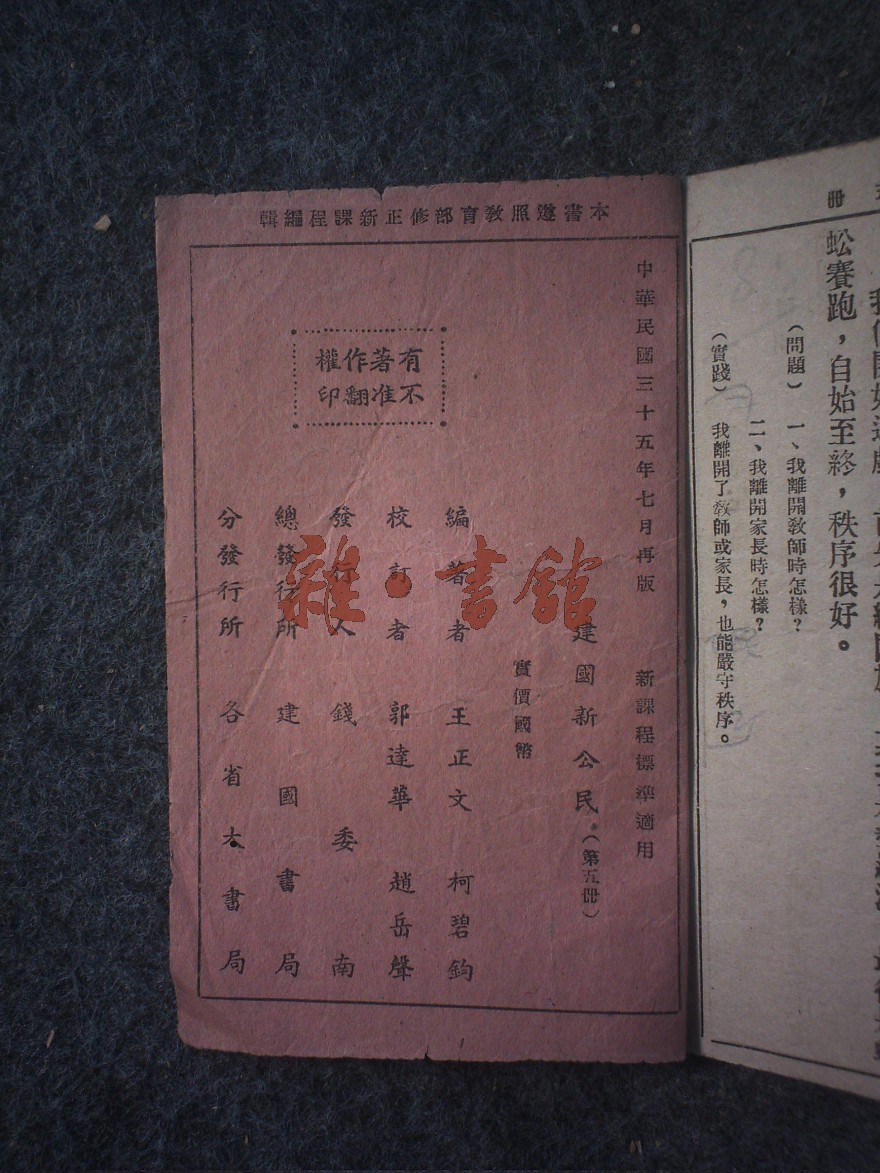 冊
蚣賽跑，自始至終，秩序很好。
（問題）　一、我離開教師時怎樣？
二、我離開家長時怎樣？
（實踐）　我離開了教師或家長，也能嚴守秩序。
本書遵照教育部修正新課程編輯
中華民國三十五年七月再版　新課程標準適用
建國新公民（第五冊）
實價國幣
編著者　王正文　柯碧鈞
校訂者　郭達華　趙岳聲
發行人　錢委南
總發行所　建國書局
分發行所　各省大書局
有著作權
不准翻印
雜·書館